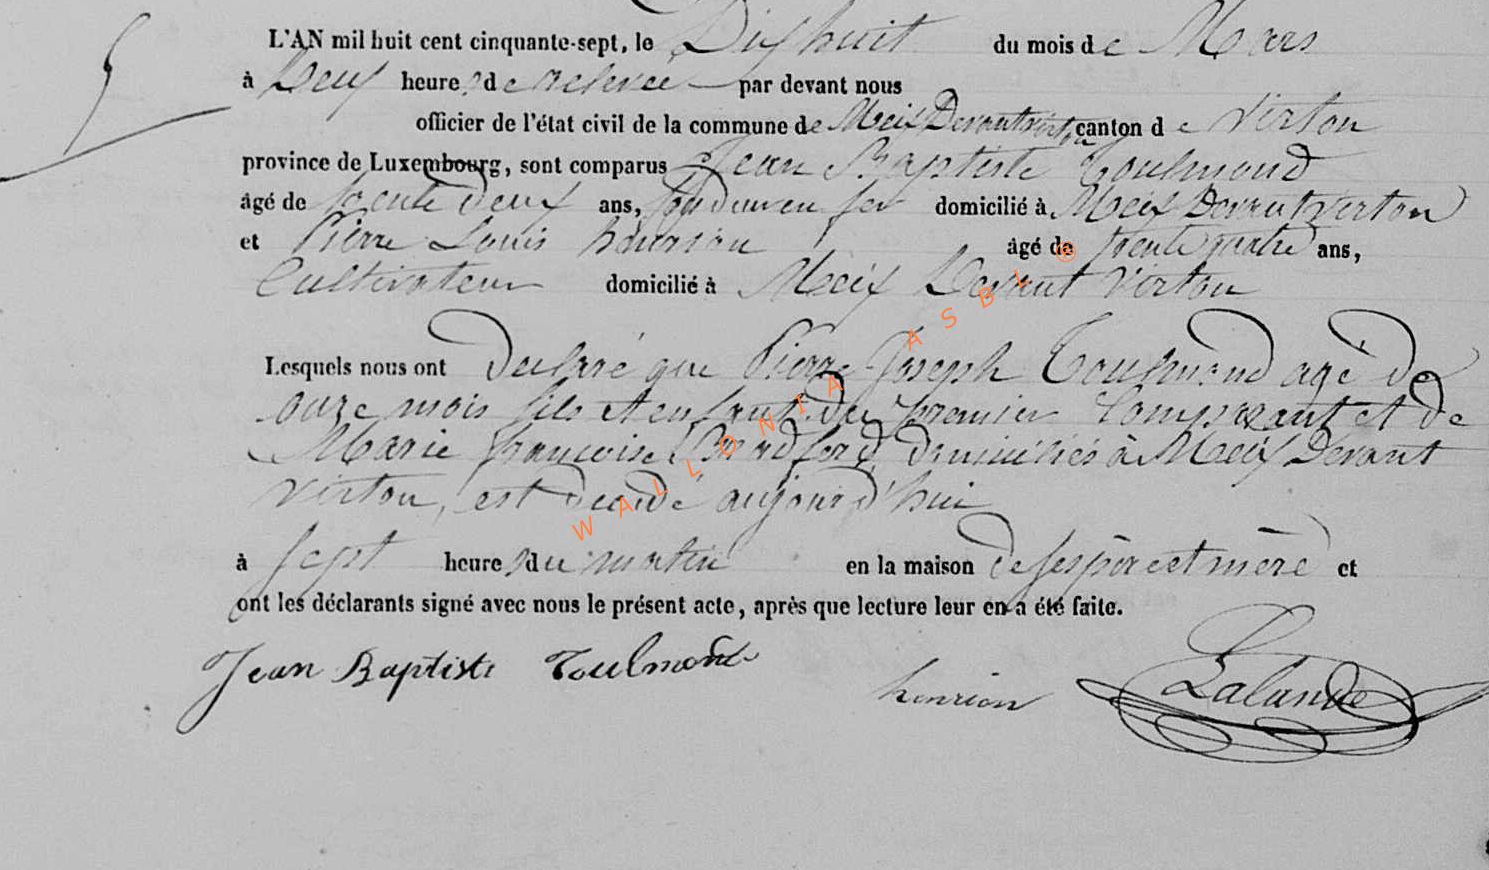 5
L'AN mil huit cent cinquante-sept, le Dix huit du mois de Mars
à Deux heures de relevée par devant nous
officier de l'état civil de la commune de Meix Devant virton canton de Virton
province de Luxembourg, sont comparus Jean Baptiste Toulmond
âgé de trente deux ans, domicilié à Meix Devant virton
et Pierre Louis henrion âgé de trente quatre ans,
Cultivateur domicilié à Meix Devant Virton
Lesquels nous ont Declaré que Pierre Joseph Toulmond agé de
onze mois fils et enfant du premier Comparant et de
Marie françoise domiciliés à Meix Devant
Virton, est decedé aujourd'hui
à sept heures du matin en la maison de ses père et mère et
ont les déclarants signé avec nous le présent acte, après que lecture leur en a été faite.
Jean Baptiste Toulmond henrion Lalande
WALLONIA ASBL ®